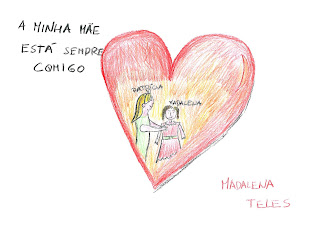 A MINHA MÃE
ESTÁ SEMPRE
COMIGO
MADALENA
MADALENA
TELES